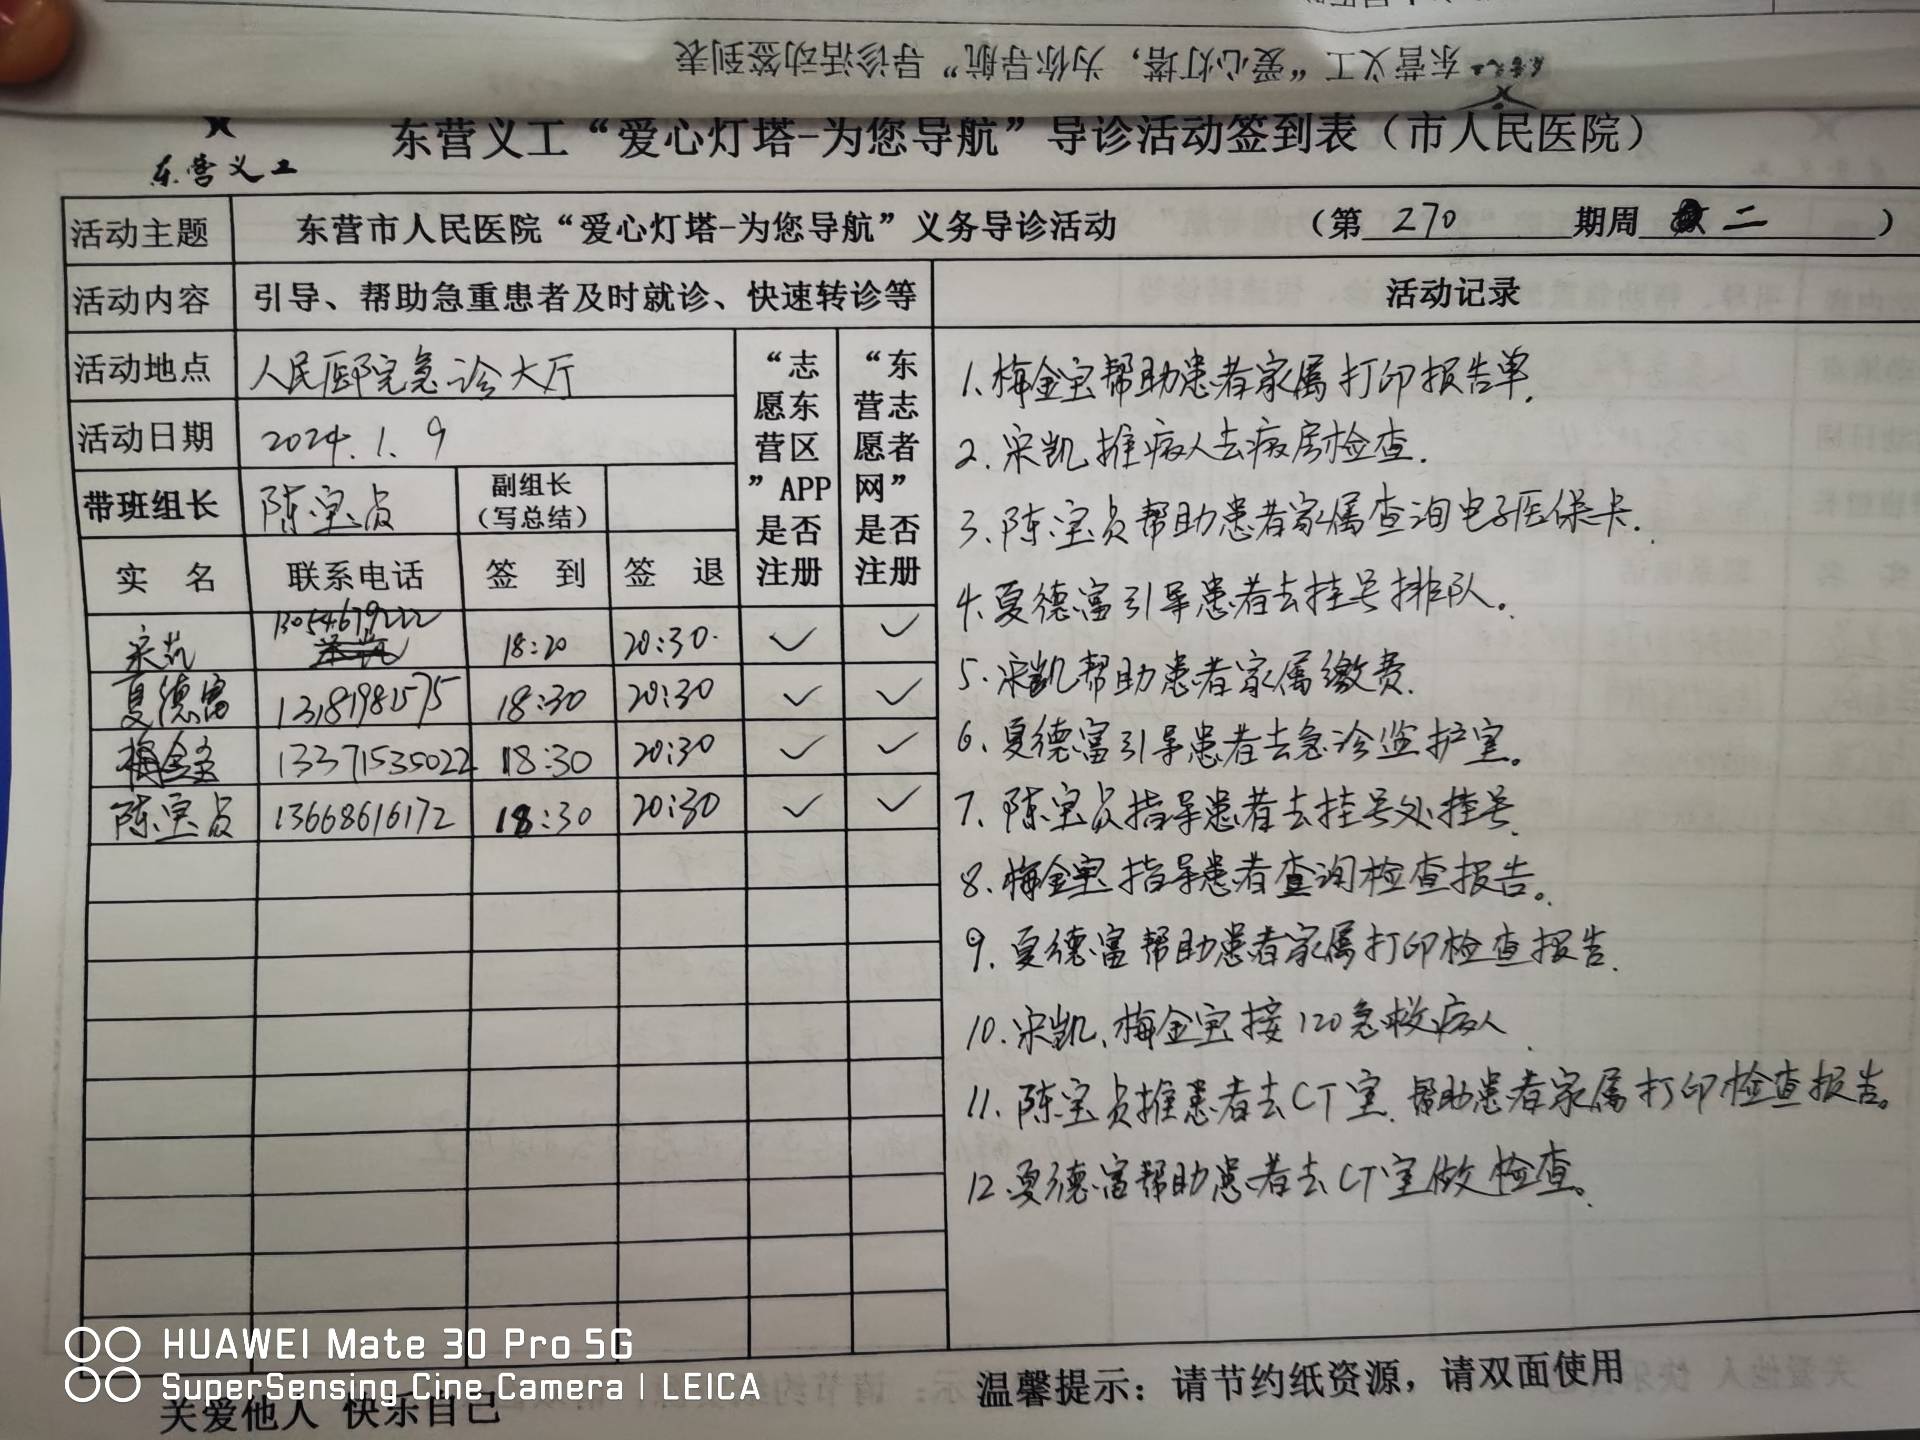 东营义工“爱心灯塔，为你导航”导诊活动签到表
东营义工
东营义工“爱心灯塔-为您导航”导诊活动签到表（市人民医院）
活动主题 东营市人民医院“爱心灯塔-为您导航”义务导诊活动 （第 270 期周 二 ）
活动内容 引导、帮助急重患者及时就诊、快速转诊等 活动记录
活动地点 人民医院急诊大厅
活动日期 2024.1.9
带班组长 陈宝贞 副组长（写总结）
“志愿东营区”APP是否注册
“东营志愿者网”是否注册
实 名 联系电话 签 到 签 退
宋凯 13054679222 18:20 20:30 ✓ ✓
夏德富 13181981575 18:30 20:30 ✓ ✓
梅金宝 13371535022 18:30 20:30 ✓ ✓
陈宝贞 13668616172 18:30 20:30 ✓ ✓
1.梅金宝帮助患者家属打印报告单.
2.宋凯推病人去病房检查.
3.陈宝贞帮助患者家属查询电子医保卡.
4.夏德富引导患者去挂号排队。
5.宋凯帮助患者家属缴费.
6.夏德富引导患者去急诊监护室。
7.陈宝贞指导患者去挂号处挂号.
8.梅金宝指导患者查询检查报告。
9.夏德富帮助患者家属打印检查报告.
10.宋凯、梅金宝接120急救病人.
11.陈宝贞推患者去CT室.帮助患者家属打印检查报告。
12.夏德富帮助患者去CT室做检查。
温馨提示：请节约纸资源，请双面使用
关爱他人 快乐自己
HUAWEI Mate 30 Pro 5G
SuperSensing Cine Camera | LEICA